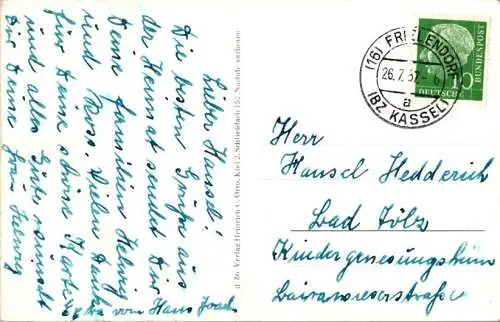 Lieber Hansel!
Die besten Grüße aus
der Heimat sendet Dir
Deine Familien Helwig
und Voss. Vielen Dank
für Deine schöne Karte
und alles Gute wünscht
Dir Deine Frau Helwig
von Hans Joach
d 26 Verlag Heinrich C. Orns, Kiel 2, Schließfach 152, Nachdr. verboten
(16) FRIELENDORF
26.7.57
a
(BZ KASSEL)
DEUTSCHE BUNDESPOST
10
Herr
Hansel Hedderich
Bad Tölz
Kindergenesungsheim